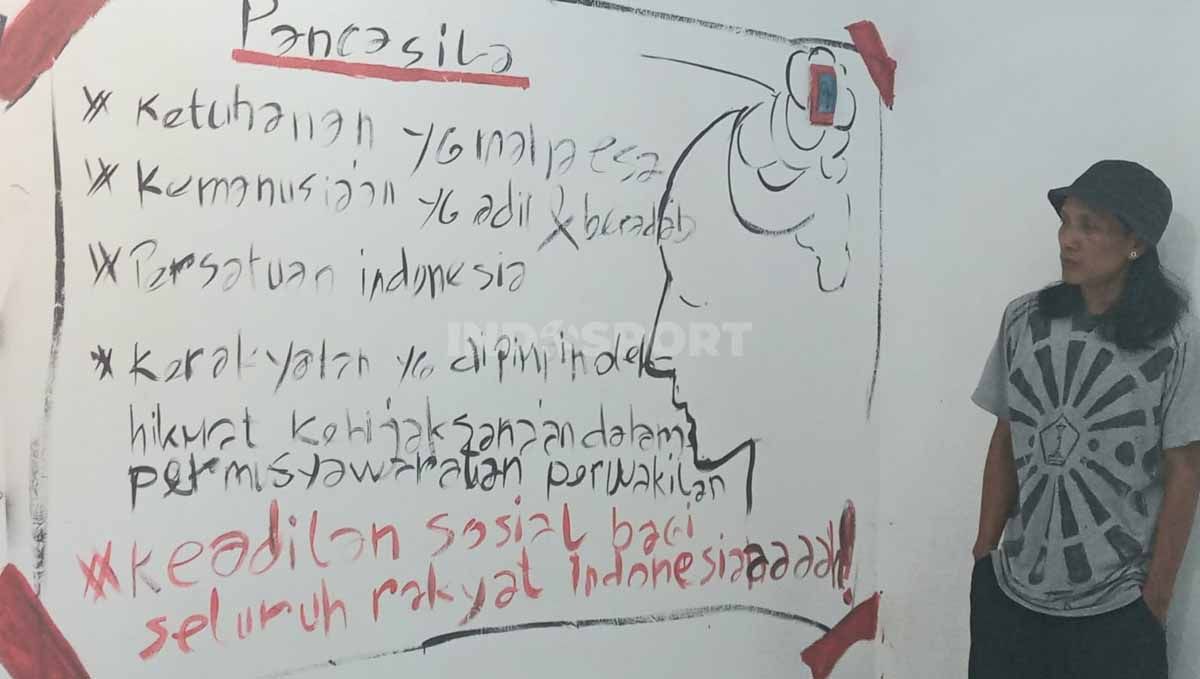 Pancasila
* Ketuhanan yg maha esa
* Kemanusiaan yg adil & beradab
* Persatuan indonesia
INDOSPORT
* Kerakyatan yg dipimpin oleh
hikmat Kebijaksanaan dalam
permusyawaratan perwakilan
* Keadilan sosial bagi
seluruh rakyat indonesiaaaaah!